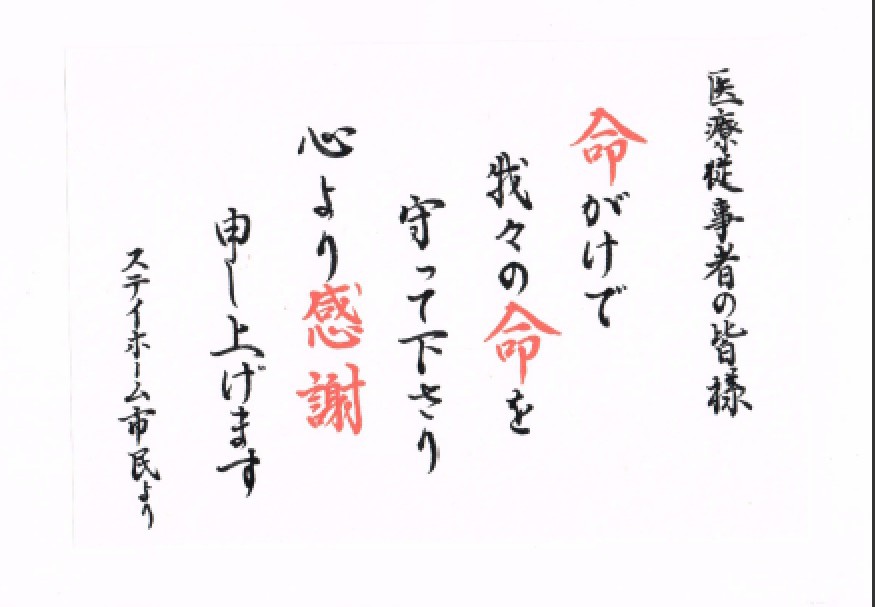 医療従事者の皆様
命がけで
我々の命を
守って下さり
心より感謝
申し上げます
ステイホーム市民より